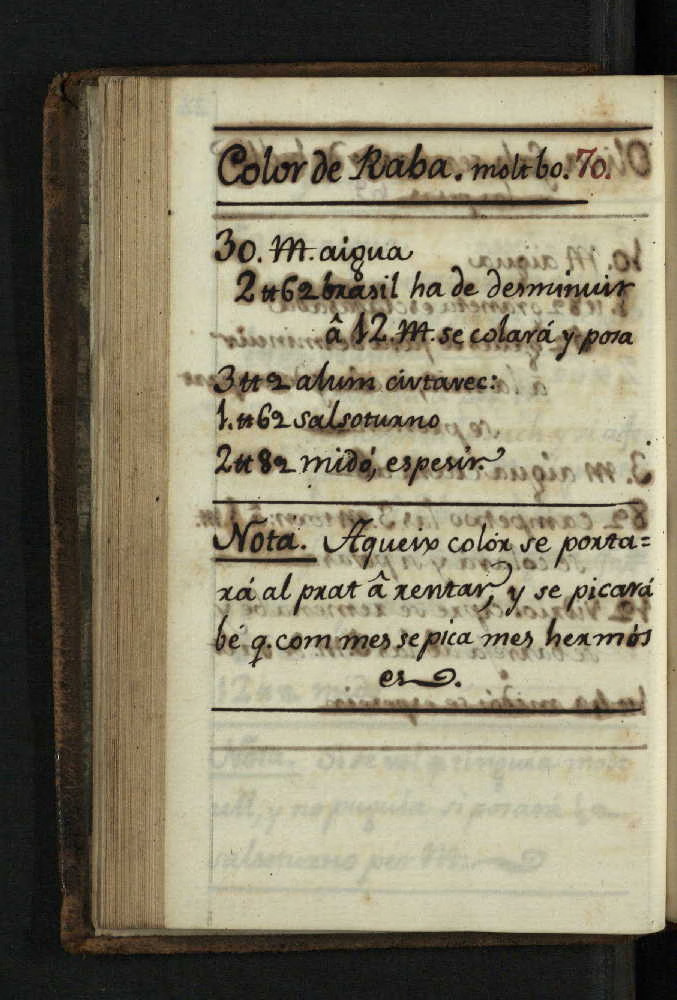 Color de Raba. molt bo. 70.
30. M. aigua
2 tt 62 brasil ha de desminuir
â 12. M. se colará y posa
3 tt 2 alum civtavec:
1. tt 62 salsoturno
2 tt 82 midó, espesir.
Nota. Aqueix color se porta=
rá al prat â rentar, y se picará
bé q. com mes se pica mes hermós
es.